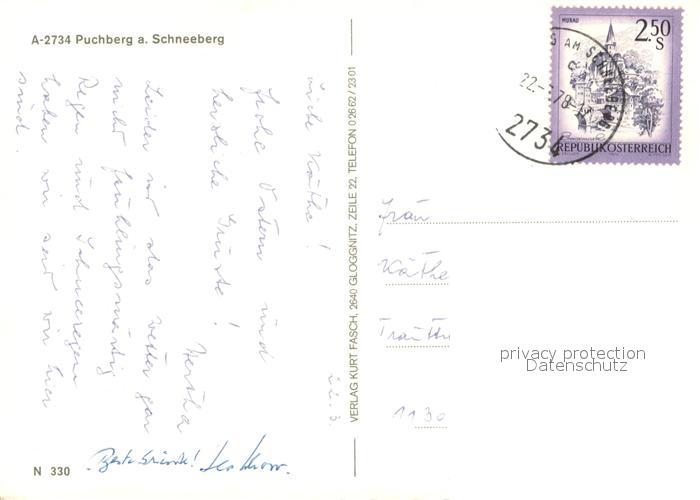 A-2734 Puchberg a. Schneeberg
22.3.
Liebe Käthe!
Frohe Ostern und
herzliche Grüße!
Hertha
Leider ist das Wetter gar
nicht frühlingsmäßig
Regen und Schneeregen
haben wir seit wir hier
sind.
N 330
VERLAG KURT FASCH, 2640 GLOGGNITZ, ZEILE 22, TELEFON 02662/2301
MURAU
2.50
S
REPUBLIK ÖSTERREICH
AM SCHNEEBERG
22.-3.78
2734
Frau
Käthe
1130
privacy protection
Datenschutz